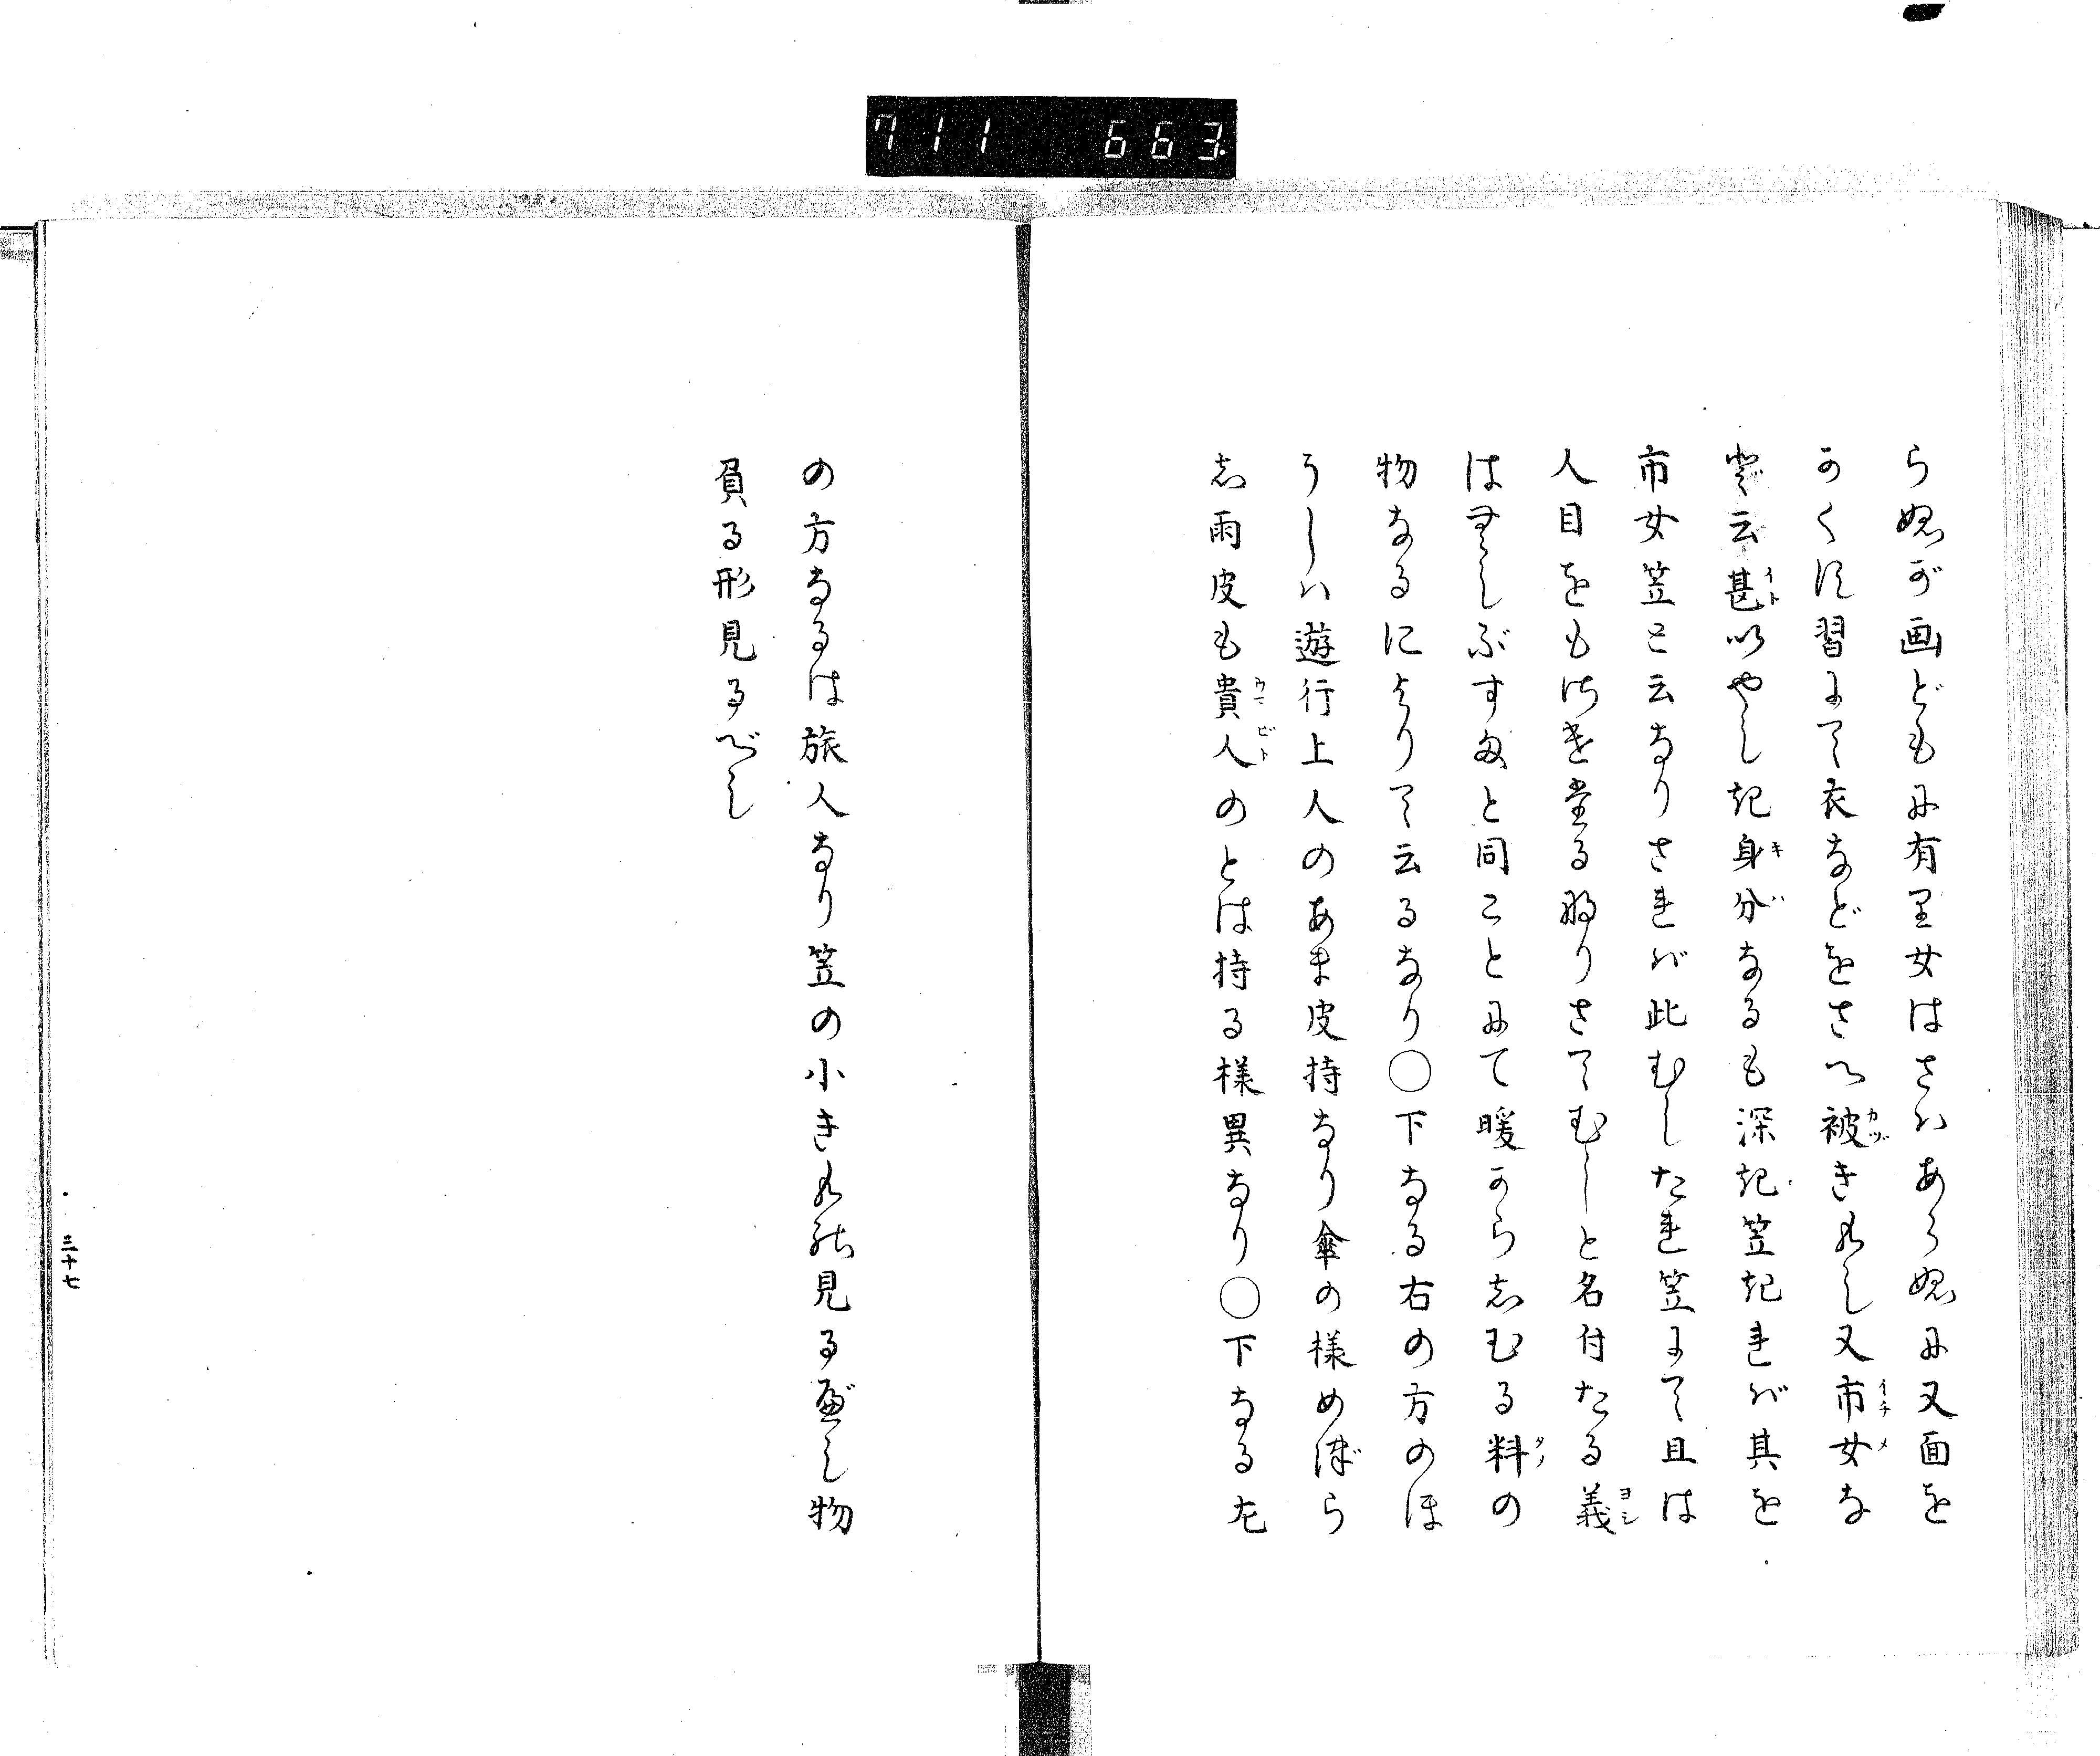 711 663
らぬが画どもに有里女はさハあらぬに又面を
かくす習にて衣などをさへ被(カヅ)きぬし又市女(イチメ)な
ど云甚(イト)いやしき身分(キハ)なるも深き笠きれば其を
市女笠と云なりされば此むしたれ笠にて且は
人目をもさけたる物りさてむしと名付たる義(ヨシ)
はむしぶすまと同ことにて暖からしむる料(タメ)の
物なるによりて云るなり○下なる右の方のほ
うしハ遊行上人のあま皮持なり傘の様めづら
し雨皮も貴人(ウマビト)のとは持る様異なり○下なる左
の方なるは旅人なり笠の小き見るべし物
負る形見るべし
三十七